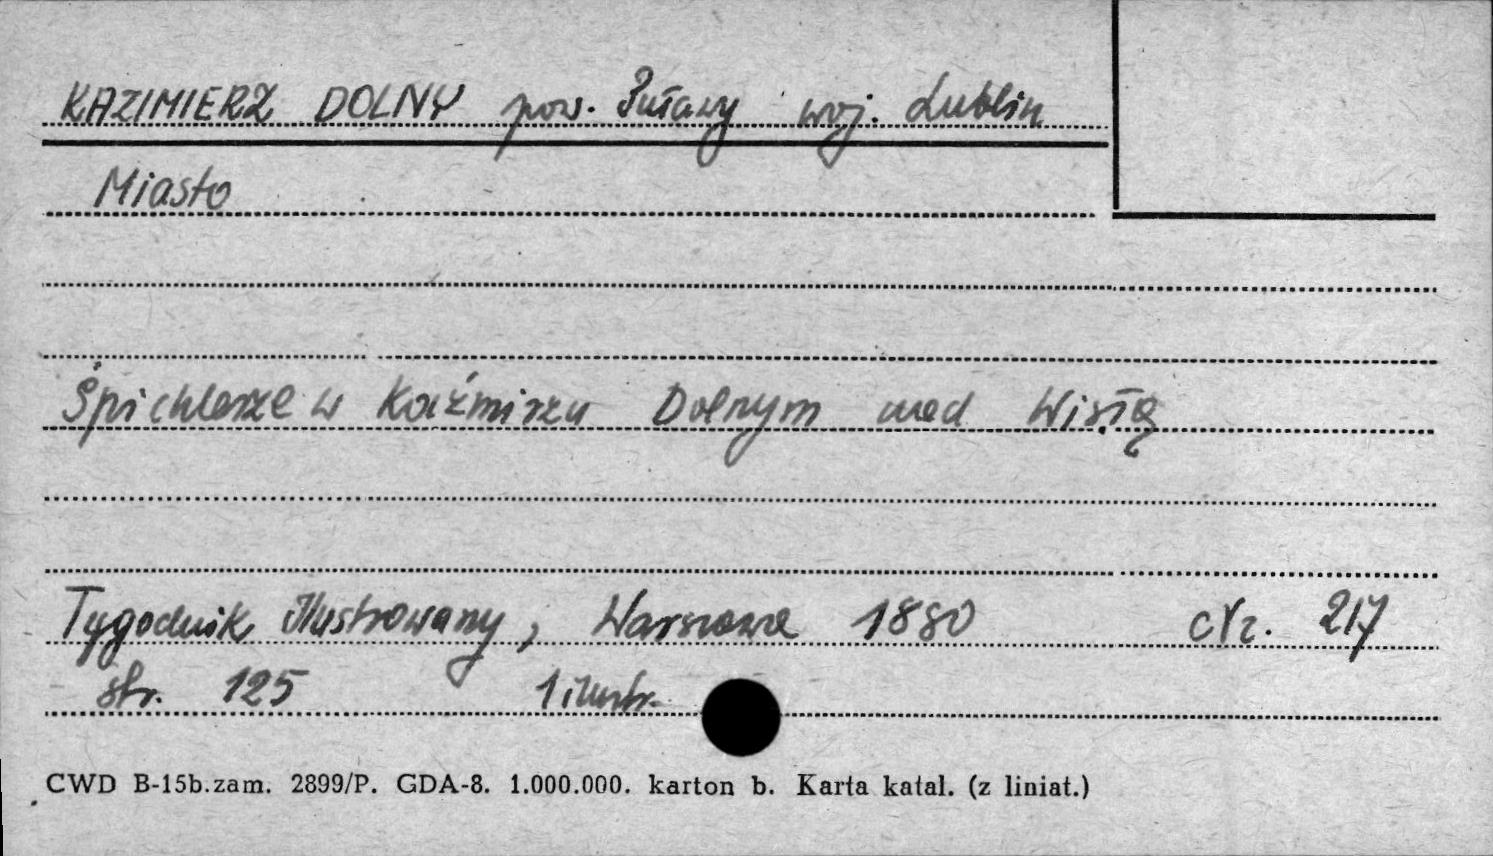 KAZIMIERZ DOLNY pow. Puławy woj. Lublin
Miasto
Śpichlerze w Kaźmirzu Dolnym nad Wisłą
Tygodnik Ilustrowany, Warszawa 1880 Nr. 217
str. 125 1 ilustr.
CWD B-15b.zam. 2899/P. GDA-8. 1.000.000. karton b. Karta katal. (z liniat.)